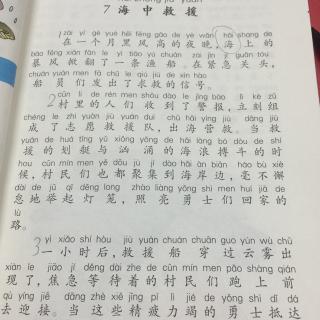 7 海中救援
zài yí gè yuè hēi fēng gāo de yè wǎn hǎi shàng de
在一个月黑风高的夜晚,海上的
bào fēng xiān fān le yì tiáo yú chuán zài jǐn jí guān tóu
暴风掀翻了一条渔船。在紧急关头,
chuán yuán men fā chū le qiú jiù de xìn hào
船员们发出了求救的信号。
2 cūn lǐ de rén men shōu dào le jǐng bào lì kè zǔ
村里的人们收到了警报,立刻组
chéng le zhì yuàn jiù yuán duì chū hǎi yíng jiù dāng jiù
成了志愿救援队,出海营救。当救
yuán de huá tǐng yǔ xiōng yǒng de hǎi làng bó dòu de shí
援的划艇与汹涌的海浪搏斗的时
hou cūn mín men yě dōu jù jí dào hǎi àn biān háo bú xiè
候,村民们也都聚集到海岸边,毫不懈
dài de jǔ qǐ dēng lóng zhào liàng yǒng shì men huí jiā de
怠地举起灯笼,照亮勇士们回家的
lù
路。
3 yì xiǎo shí hòu jiù yuán chuán chuān guò yún wù chū
一小时后,救援船穿过云雾出
xiàn le jiāo jí děng dài zhe de cūn mín men pǎo shàng qián
现了,焦急等待着的村民们跑上前
qù yíng jiē dāng zhè xiē jīng pí lì jié de yǒng shì dǐ dá
去迎接。当这些精疲力竭的勇士抵达